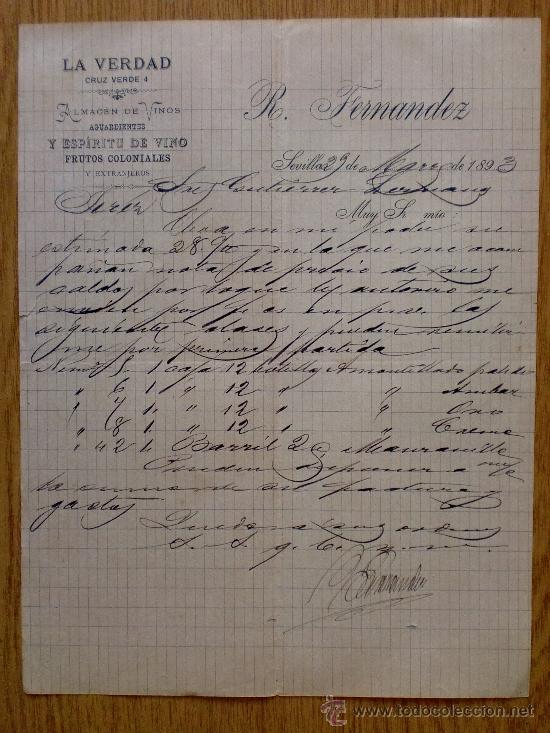 LA VERDAD
CRUZ VERDE 4
ALMACEN DE VINOS
AGUARDIENTES
Y ESPÍRITU DE VINO
FRUTOS COLONIALES
Y EXTRANJEROS
R. Fernandez
Sevilla 29 de Mayo de 1893
Sres Gutiérrez Hermanos
Jerez
Muy Sr. mío:
Obra en mi poder su
estimada 28 y en la que me acom
pañan nota de precio de sus
caldos por lo que les autorizo me
por en las
siguientes clases y pueden remitir
me por primera partida
Num 5 1 caja 12 botellas Amontillado
" 6 1 " 12 " " Ambar
" 7 1 " 12 " " Oro
" 8 1 " 12 " " Creme
" 42 1 Barril 2 @ Manzanilla
Pueden disponer a mi
la suma de su factura y
gastos
Queda a sus ordenes
S. S. q. b. s. m.
R Fernandez
todocoleccion
www.todocoleccion.net